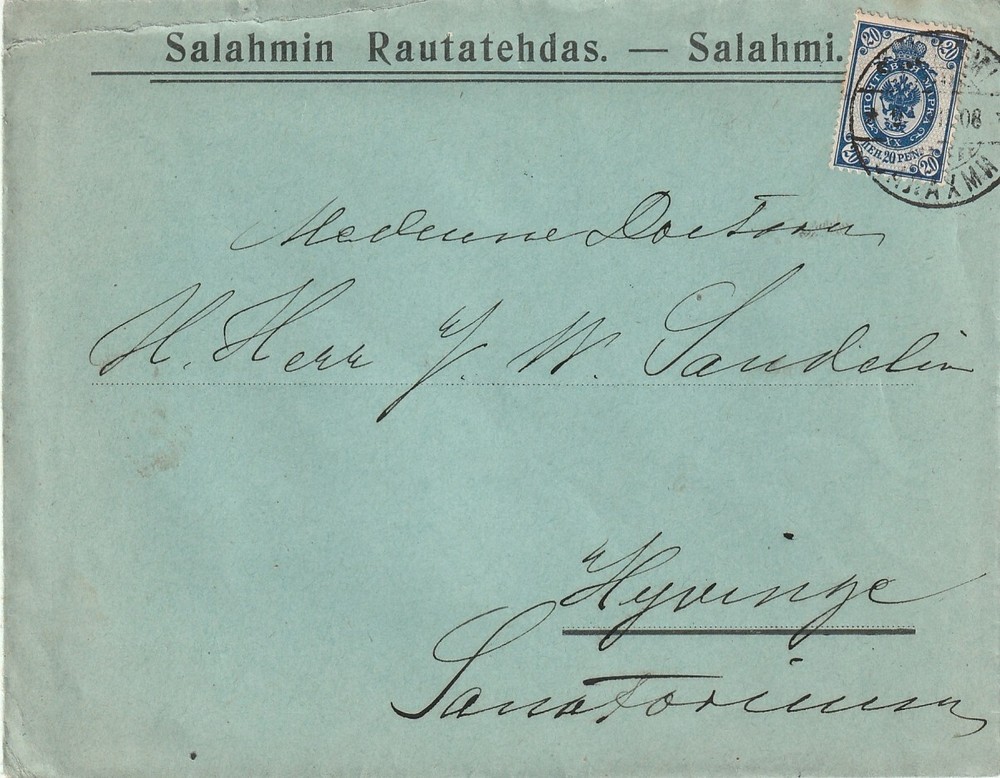 Salahmin Rautatehdas. — Salahmi.
20 20
ПОЧТОВАЯ МАРКА
XX
ПЕН. 20 PEN.
20 20
08
САЛАХМИ
Medicine Doctorn
H. Herr J. W. Sandelin
Hyvinge
Sanatorium